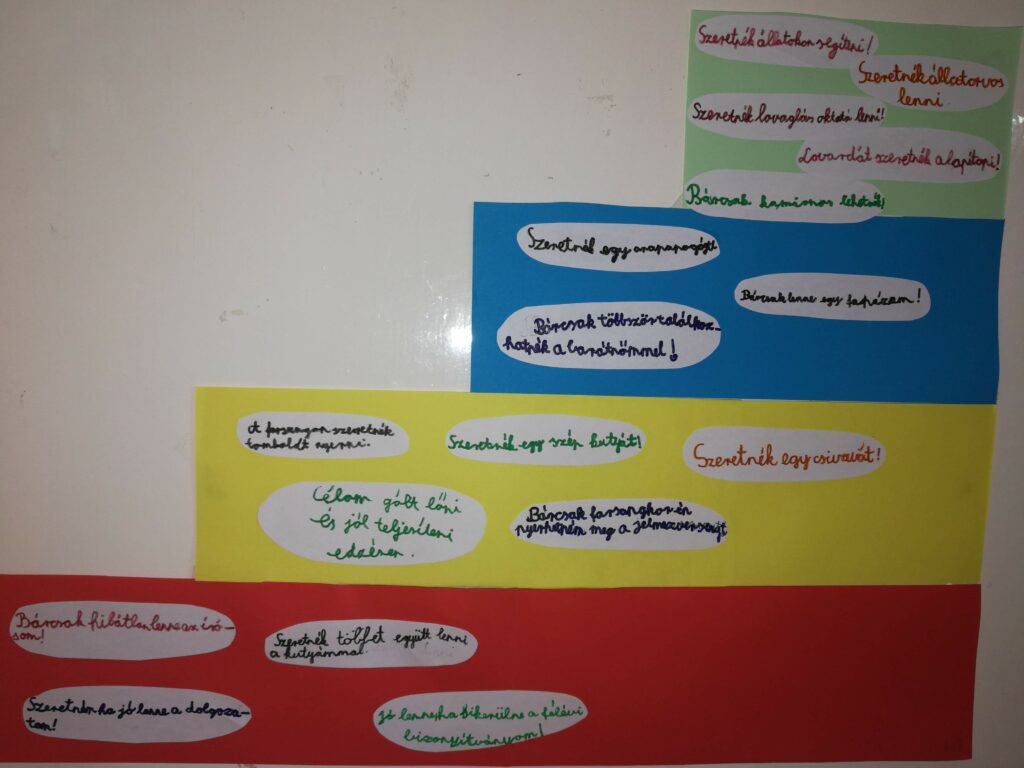 Szeretnék állatokon segíteni!
Szeretnék állatorvos
lenni.
Szeretnék lovaglás oktató lenni!
Lovardát szeretnék alapítani!
Bárcsak kamionos lehetnék!
Szeretnék egy
Bárcsak lenne egy faházam!
Bárcsak többször találkoz-
hatnék a barátnőmmel!
A farsangon szeretnék
tombolát nyerni.
Szeretnék egy szép kutyát!
Szeretnék egy csivavát!
Célom gólt lőni
és jól teljesíteni
edzésen.
Bárcsak farsangkor én
nyerhetném meg a jelmezversenyt
Bárcsak hibátlan lenne az írá-
som!
Szeretnék többet együtt lenni
a kutyámmal.
Szeretném ha jó lenne a dolgoza-
tom!
Jó lenne, ha sikerülne a félévi
bizonyítványom!